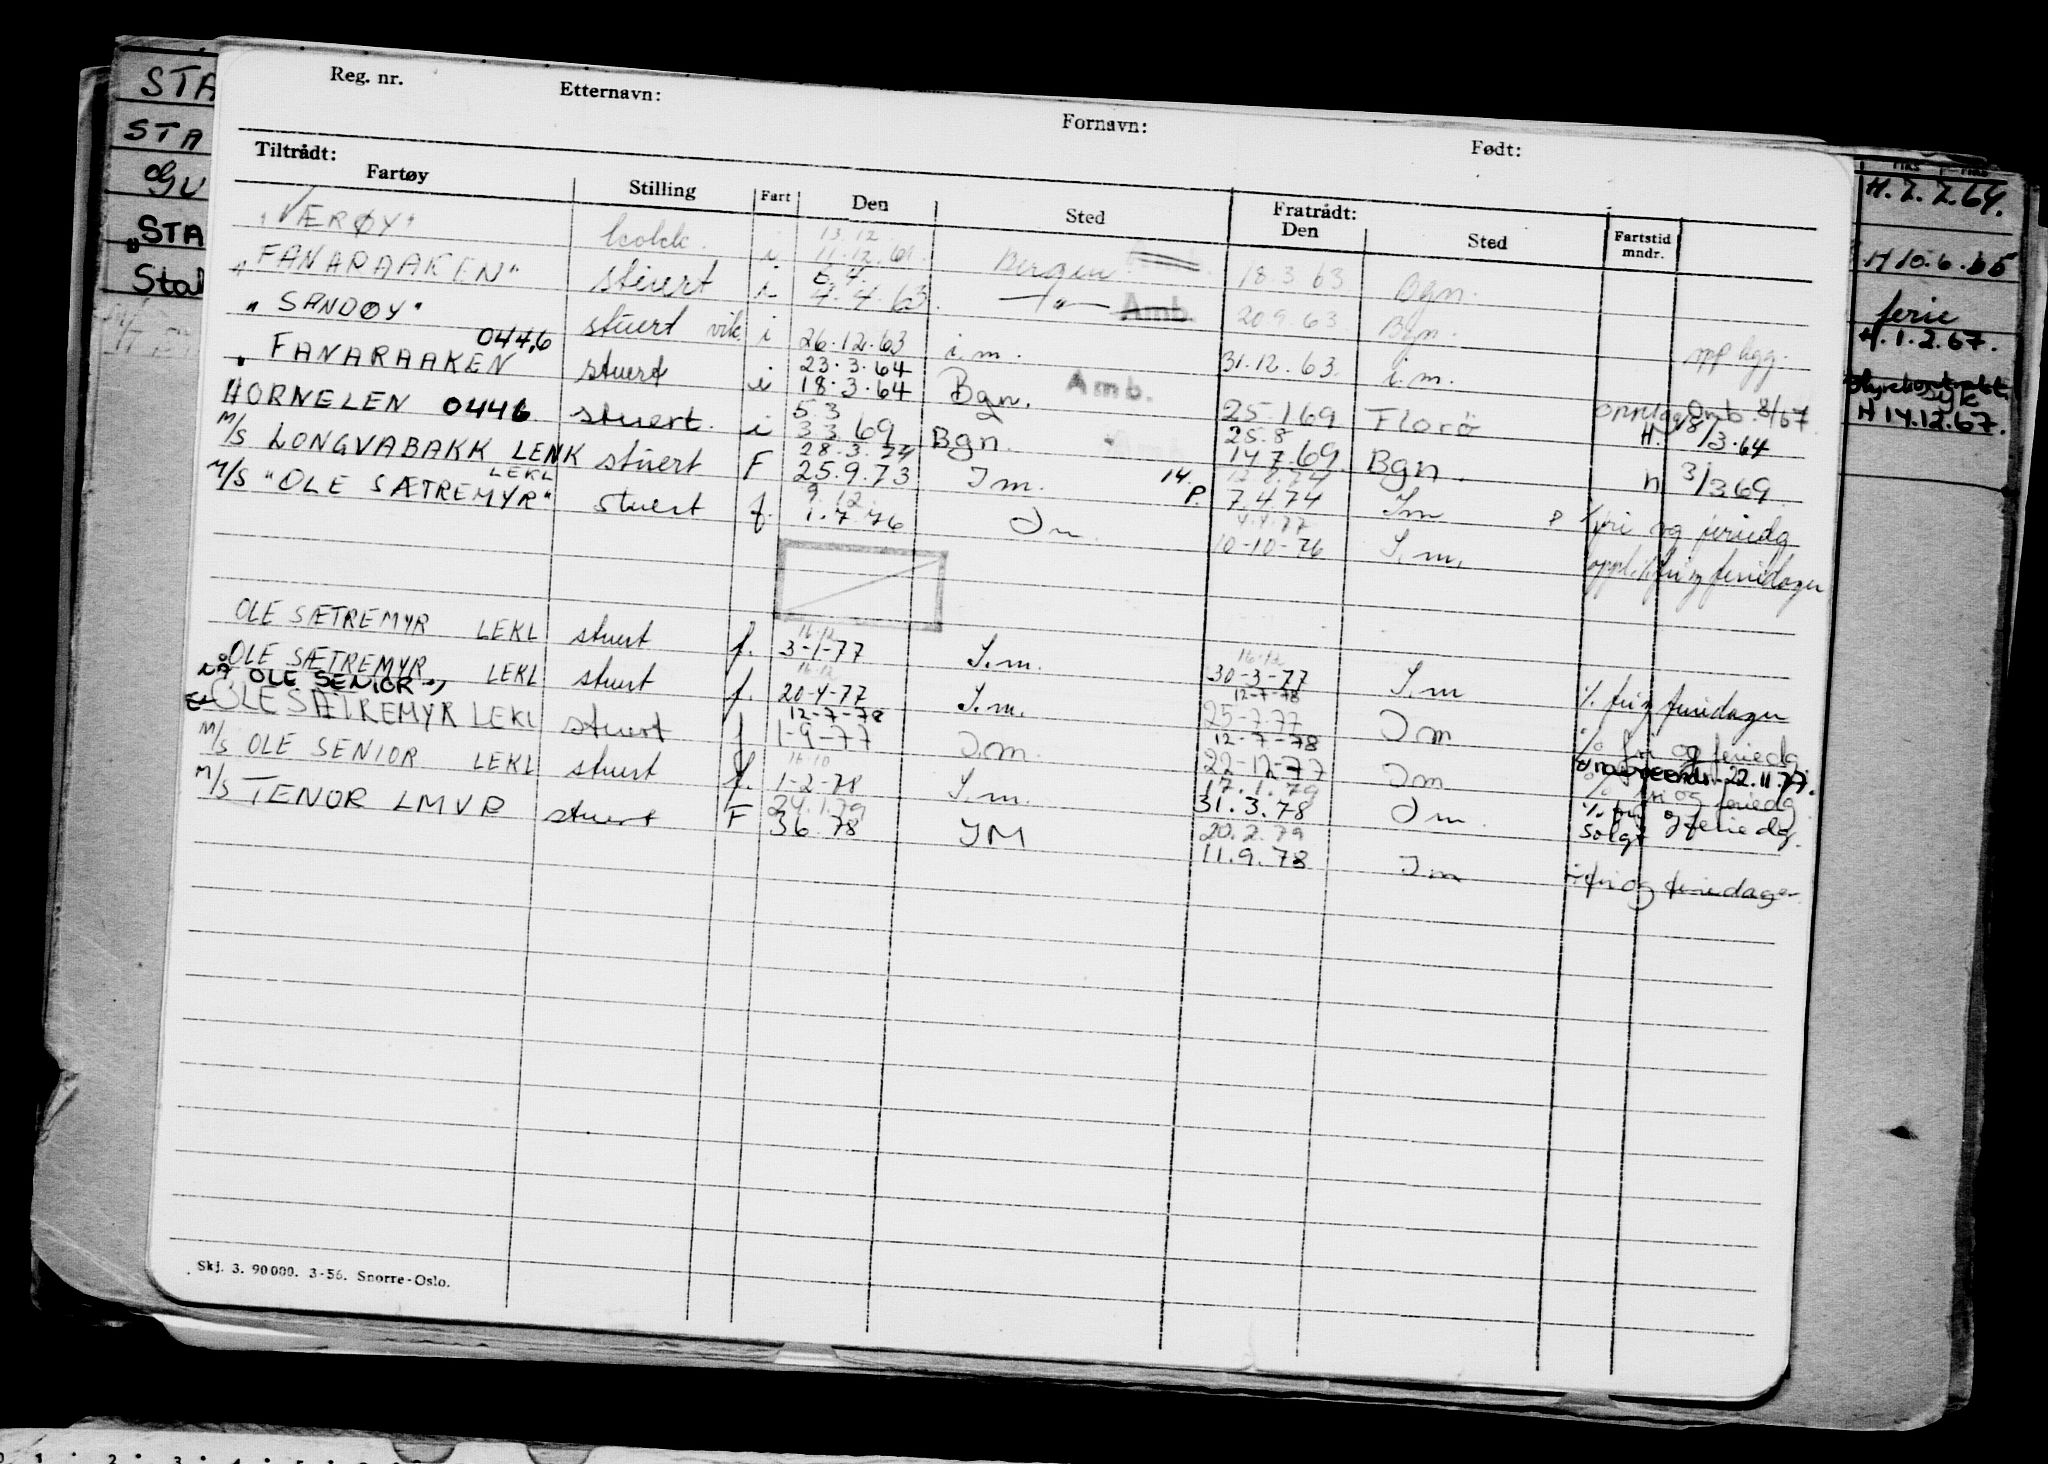 Reg. nr. Etternavn: Fornavn: Født:
Tiltrådt: Fratrådt:
Fartøy Stilling Fart Den Sted Den Sted Fartstid mndr.
"VÆRØY" kokk. i 13.12 11.12.61 Bergen 18.3.63 Bgn.
"FANARAAKEN" stuert i 5.4. 4.4.63. —"— Amb. 20.9.63 Bgn. opp.hgg.
"SANDØY" stuert vik i 26.12.63 i.m. 31.12.63. i.m.
" FANARAAKEN 0446 stuert i 23.3.64 18.3.64 Bgn. Amb. 25.1.69 Florö Omb. 8/67 H. 18/3.64
HORNELEN 0446 stuert. i 5.3 3.3.69 Bgn. 25.8 14.7.69 Bgn. h 3/3.69
M/S LONGVABAKK LENK stuert F 28.3.74 25.9.73 Im. 14. P. 12.8.74 7.4.74 Im P % fri og feriedg
M/S "OLE SÆTREMYR" LEKL stuert f. 9.12. 1.7.76 Im. 4.4.77 10-10-76 I.m. oppl. % fri og feriedager
OLE SÆTREMYR LEKL stuert f. 16.12 3-1-77 I.m. 16.12 30-3-77 I.m % fri og feriedager
OLE SÆTREMYR LEKL stuert f. 16.12 20-4-77 I.m. 12-7-78 25-7-77 Im % fri og feriedg
NÅ OLE SENIOR
EX OLE SÆTREMYR LEKL stuert f 12-7-78 1-9-77 I.m. 12-7-78 22-12-77 Im navneendr. 22.11.77. % fri og feriedg
M/S OLE SENIOR LEKL stuert f. 16.10 1-2-78 I.m. 17.1.79 31.3.78 Im. % fri og feriedg. Solgt
M/S TENOR LMVR stuert F 24.1.79 3.6.78 IM 20.2.79 11.9.78 Im % fri og feriedager
Skj. 3. 90000. 3-56. Snorre-Oslo.
STA
STA
GU
"STA
Stal
H.2.2.64.
H 10.6.65
ferie
H.1.2.67.
Styrekontrakt
syk
H 14.12.67.
0 1 2 3 4 5